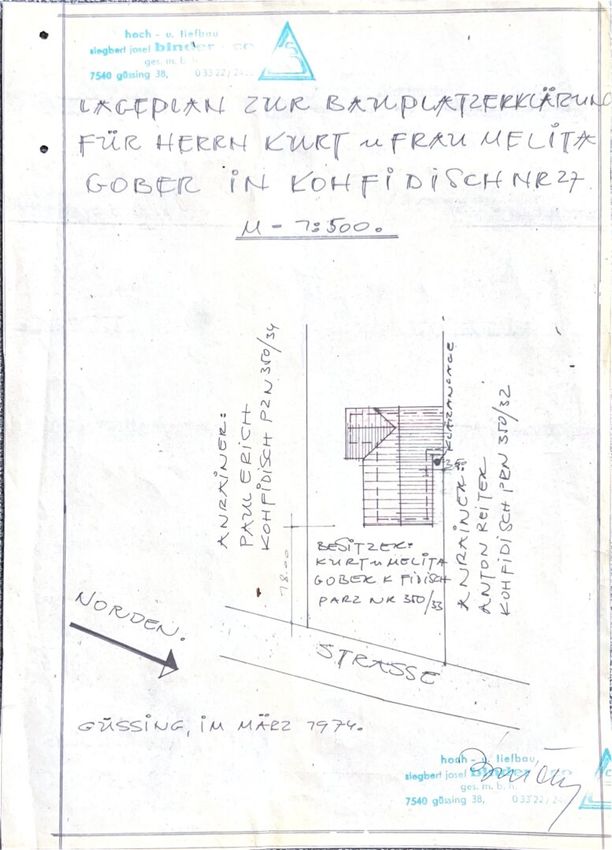 hoch - u. tiefbau
siegbert josef binder + co
ges. m. b. h.
7540 güssing 38, 03322/24
LAGEPLAN ZUR BAUPLATZERKLÄRUNG
FÜR HERRN KURT u FRAU MELITA
GOBER IN KOHFIDISCH NR 27.
M - 1:500.
ANRAINER:
PAUL ERICH
KOHFIDISCH PZN 350/34
KLÄRANLAGE
ANRAINER
ANTON REITER
KOHFIDISCH PRN 350/32
BESITZER:
KURT u MELITA
GOBER K FIDISCH
PARZ NR 350/33
18.00
NORDEN.
STRASSE
GÜSSING, IM MÄRZ 1974.
hoch - u. tiefbau
siegbert josef
ges. m. b. h.
7540 güssing 38, 03322/24